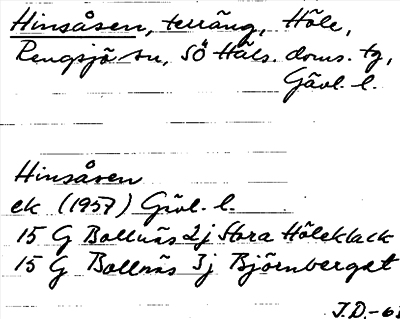 Hinsåsen, terräng, Höle,
Rengsjö sn, SÖ Häls. doms. tg,
Gävl. l.
Hinsåsen
ek (1957) Gävl. l.
15 G Bollnäs 2j Stora Höleklack
15 G Bollnäs 3j Björnberget
J.D.-61